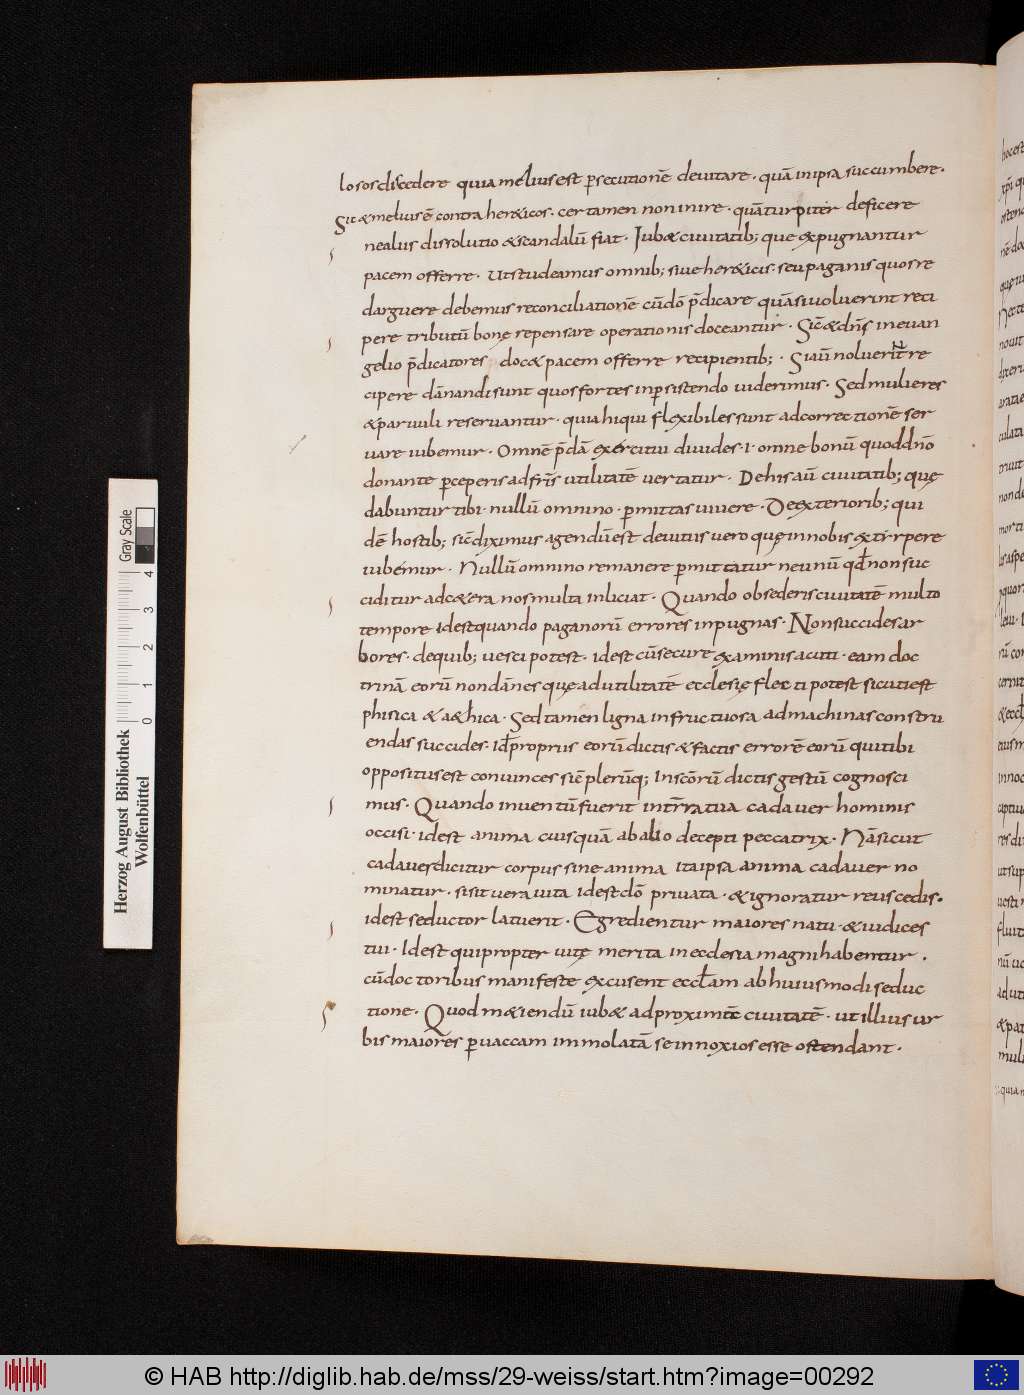 losos discedere quia melius est ꝑsecutionē devitare · quā in ipsa succumbere ·
Sic & melius ē contra her&icos · certamen non inire · quā turpiter deficere
ne alius dissolutio & scandalū fiat · Iub& civitatib; que expugnantur
pacem offerre · ut studeamus omnib; sive her&icis seu paganis quos re
darguere debemus reconciliationē cūdō p̄dicare quā si voluerint reci
pere tributū bonę repensare operationis doceantur · Sic̄ & dn̄s in evan
gelio p̄dicatores doc& pacem offerre recipientib; · Si aū noluerint re
cipere dānandi sunt quos fortes in ꝑsistendo viderimus · Sed mulieres
& parvuli reservantur · quia hi qui flexibiles sunt ad correctionē ser
vare iubemur · Omnē p̄dā exercitui divides · i · omne bonū quod dn̄o
donante ꝑceperis ad fr̄is utilitatē vertatur · De his aū civitatib; quę
dabuntur tibi · nullū omnino · ꝑmittas vivere · De exteriorib; qui
dē hostib; sic̄ diximus agendū est de vitiis vero quę in nobis extirpere
iubemur · Nullū omnino remanere ꝑmittatur ne unū qđ non suc
ciditur ad c&era nos multa inliciat · Quando obsederis civitatē multo
tempore idest quando paganorū errores inpugnas · Non succides ar
bores · de quib; vesci potest · idest cū secure examinis acuti · eam doc
trinā eorū non dānes quę ad utilitatē ecclesię flecti potest sicuti est
phisica & a&hica · Sed tamen ligna infructuosa ad machinas constru
endas succides · Id ꝑ propriis eorū dictis & factis errorē eorū qui tibi
oppositus est convinces sic̄ plerūq; in scōrū dictis gestū cognosci
mus · Quando inventū fuerit in tr̄ra tua cadaver hominis
occisi · idest anima cuiusquā ab alio decepti peccatrix · Nā sicut
cadaver dicitur corpus sine anima ita ipsa anima cadaver no
minatur · si sit vera vita idest dō privata · & ignoratur reus cedis ·
idest seductor latuerit · Egredientur maiores natu · & iudices
tui · Idest qui propter vitę merita in ecclesia magni habentur ·
cū doctoribus manifeste excusent eccłam ab huiusmodi seduc
tione · Quod m&iendū iub& ad proximāc civitatē · ut illius ur
bis maiores ꝑ vaccam immolatā se innoxios esse ostendant ·
Herzog August Bibliothek
Wolfenbüttel
0 1 2 3 4
Gray Scale
© HAB http://diglib.hab.de/mss/29-weiss/start.htm?image=00292